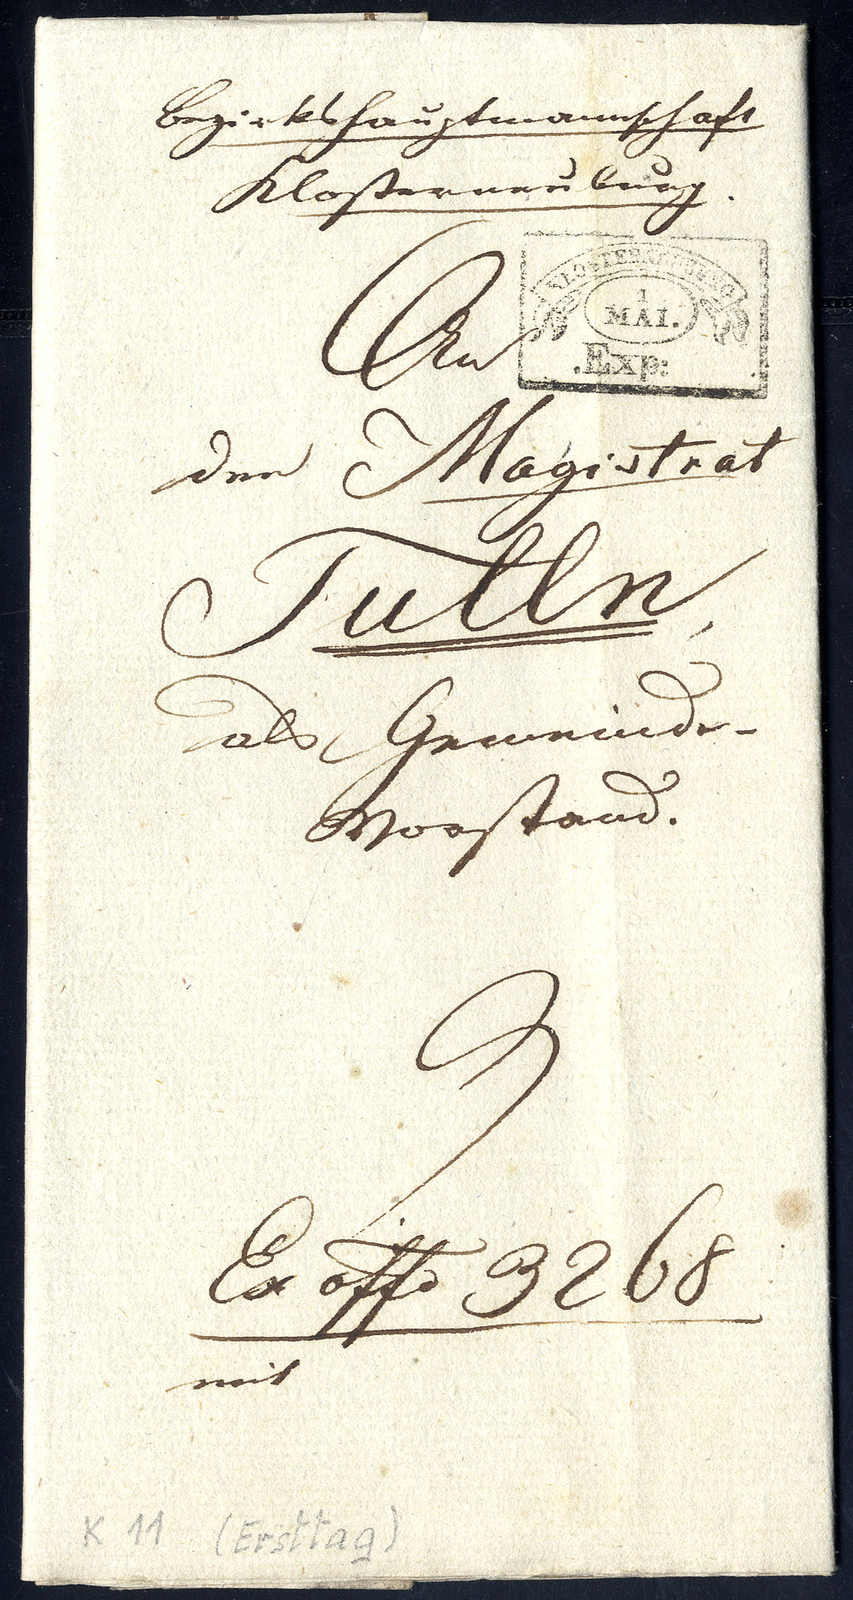 Bezirkshauptmannschaft
Klosterneuburg.
KLOSTERNEUBURG
1
MAI.
.Exp:
An
den Magistrat
Tulln,
als Gemeinde-
Vorstand.
Ex offo 3268
mit
K 11 (Ersttag)